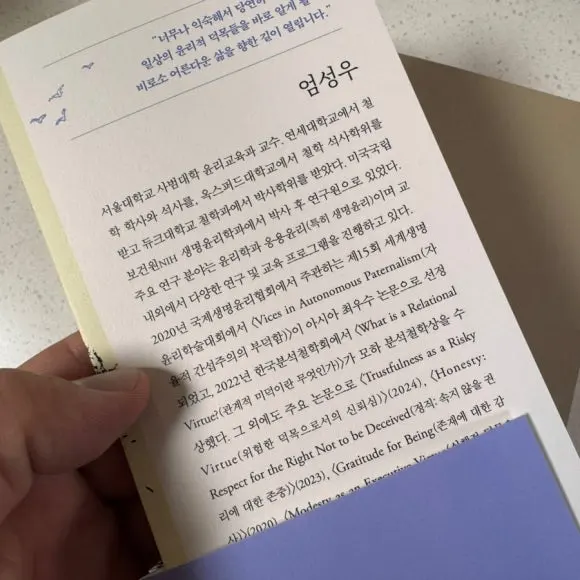 "너무나 익숙해서 당연하
일상의 윤리적 덕목들을 바로 알게 될
비로소 어른다운 삶을 향한 길이 열립니다."
엄성우
서울대학교 사범대학 윤리교육과 교수. 연세대학교에서 철
학 학사와 석사를, 옥스퍼드대학교에서 철학 석사학위를
받고 듀크대학교 철학과에서 박사학위를 받았다. 미국국립
보건원NIH 생명윤리학과에서 박사 후 연구원으로 있었다.
주요 연구 분야는 윤리학과 응용윤리(특히 생명윤리)이며 교
내외에서 다양한 연구 및 교육 프로그램을 진행하고 있다.
2020년 국제생명윤리협회에서 주관하는 제15회 세계생명
윤리학술대회에서 〈Vices in Autonomous Paternalism(자
율적 간섭주의의 부덕함)〉이 아시아 최우수 논문으로 선정
되었고, 2022년 한국분석철학회에서 〈What is a Relational
Virtue?(관계적 미덕이란 무엇인가)〉가 모하 분석철학상을 수
상했다. 그 외에도 주요 논문으로 〈Trustfulness as a Risky
Virtue(위험한 덕목으로서의 신뢰심)〉(2024), 〈Honesty:
Respect for the Right Not to be Deceived(정직: 속지 않을 권
리에 대한 존중)〉(2023), 〈Gratitude for Being(존재에 대한 감
사)〉(2020), 〈Modesty as an Executive